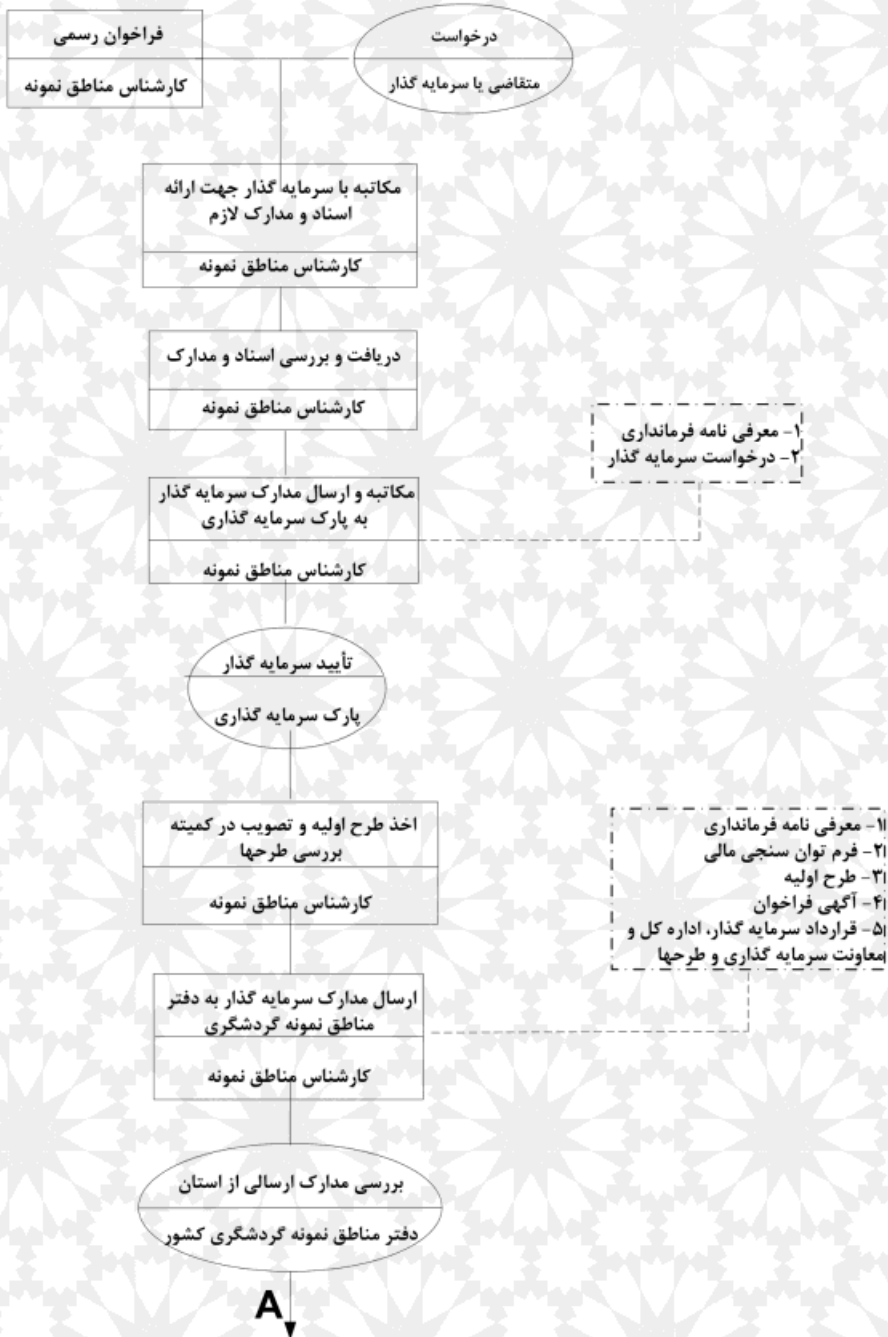 فراخوان رسمی
کارشناس مناطق نمونه
درخواست
متقاضی یا سرمایه گذار
مکاتبه با سرمایه گذار جهت ارائه
اسناد و مدارک لازم
کارشناس مناطق نمونه
دریافت و بررسی اسناد و مدارک
کارشناس مناطق نمونه
۱- معرفی نامه فرمانداری
۲- درخواست سرمایه گذار
مکاتبه و ارسال مدارک سرمایه گذار
به پارک سرمایه گذاری
کارشناس مناطق نمونه
تأیید سرمایه گذار
پارک سرمایه گذاری
اخذ طرح اولیه و تصویب در کمیته
بررسی طرحها
کارشناس مناطق نمونه
۱- معرفی نامه فرمانداری
۲- فرم توان سنجی مالی
۳- طرح اولیه
۴- آگهی فراخوان
۵- قرارداد سرمایه گذار، اداره کل و
معاونت سرمایه گذاری و طرحها
ارسال مدارک سرمایه گذار به دفتر
مناطق نمونه گردشگری
کارشناس مناطق نمونه
بررسی مدارک ارسالی از استان
دفتر مناطق نمونه گردشگری کشور
A